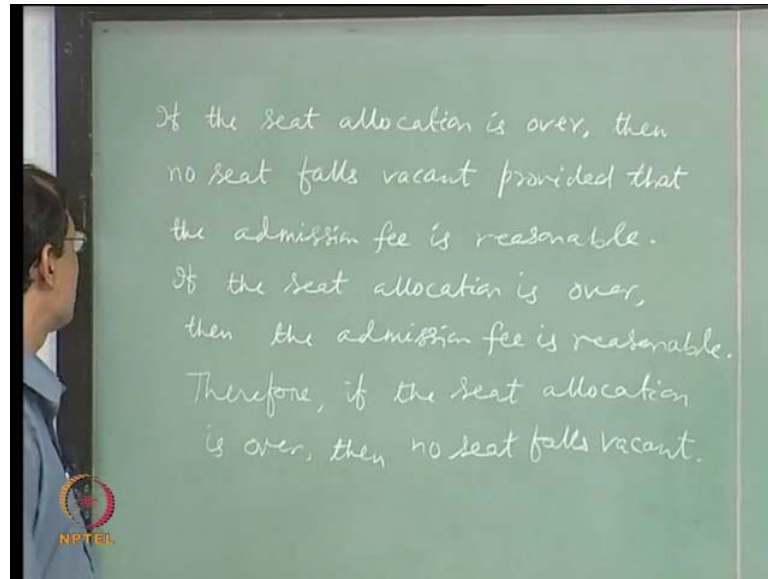 If the seat allocation is over, then
no seat falls vacant provided that
the admission fee is reasonable.
If the seat allocation is over,
then the admission fee is reasonable.
Therefore, if the seat allocation
is over, then no seat falls vacant.
NPTEL